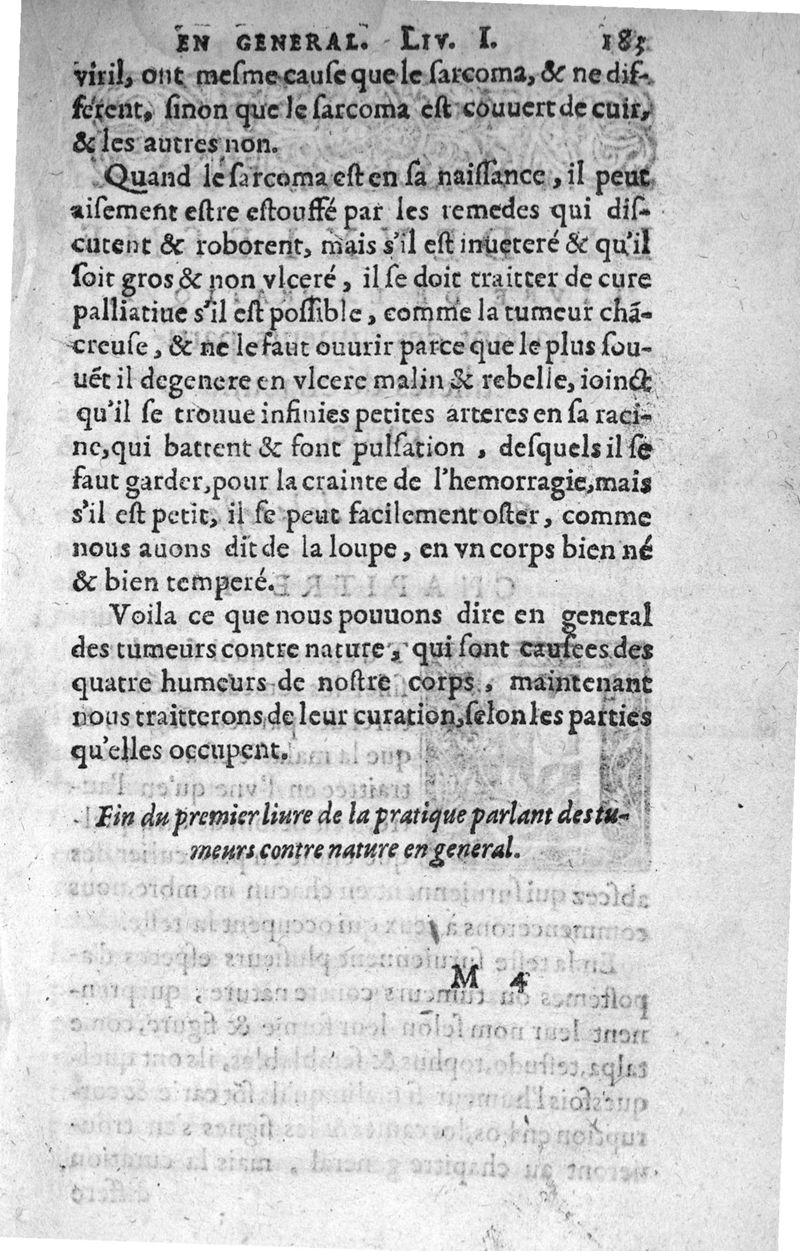 EN GENERAL. LIV. I. 185
viril, ont meſme cauſe que le ſarcoma, & ne dif-
ferent, ſinon que le ſarcoma eſt couuert de cuir,
& les autres non.
Quand le ſarcoma eſt en ſa naiſſance, il peut
aiſement eſtre eſtouffé par les remedes qui diſ-
cutent & roborent, mais s'il eſt inueteré & qu'il
ſoit gros & non vlceré, il ſe doit traitter de cure
palliatiue s'il eſt poſſible, comme la tumeur chã-
creuſe, & ne le faut ouurir parce que le plus ſou-
uẽt il degenere en vlcere malin & rebelle, ioinct
qu'il ſe trouue infinies petites arteres en ſa raci-
ne, qui battent & font pulſation, deſquels il ſe
faut garder, pour la crainte de l'hemorragie, mais
s'il eſt petit, il ſe peut facilement oſter, comme
nous auons dit de la loupe, en vn corps bien né
& bien temperé.
Voila ce que nous pouuons dire en general
des tumeurs contre nature, qui ſont cauſees des
quatre humeurs de noſtre corps, maintenant
nous traitterons de leur curation, ſelon les parties
qu'elles occupent.
Fin du premier liure de la pratique parlant des tu-
meurs contre nature en general.
M 4